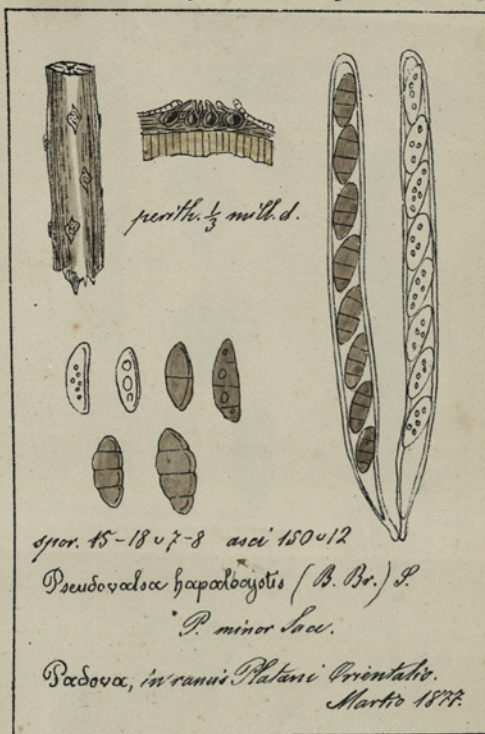 perith. ⅓ mill. d.
spor. 15-18 ᴗ 7-8 asci 150 ᴗ 12
Pseudovalsa hapalocystis (B. Br.) S.
* P. minor Sacc.
Padova, in ramis Platani Orientalis.
Martio 1877.